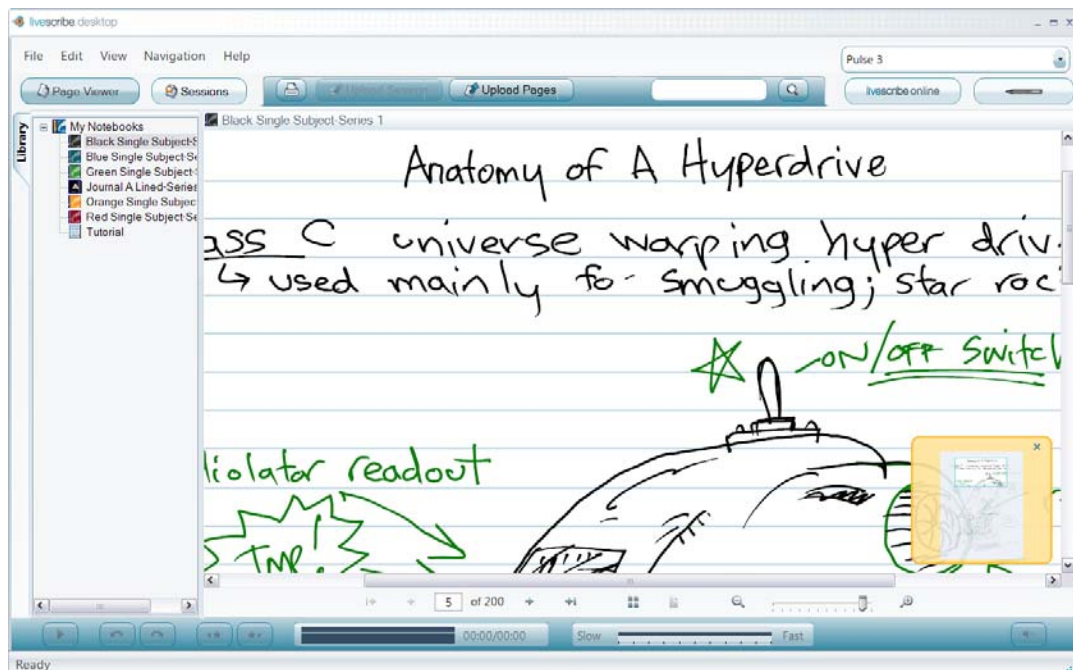 livescribe desktop
File Edit View Navigation Help
Pulse 3
Page Viewer
Sessions
Upload Session
Upload Pages
livescribe online
Library
My Notebooks
Black Single Subject-S
Blue Single Subject-Se
Green Single Subject-
Journal A Lined-Series
Orange Single Subjec
Red Single Subject-Se
Tutorial
Black Single Subject-Series 1
Anatomy of A Hyperdrive
ass C universe warping hyper driv
↳ used mainly for smuggling; star roc
ON/OFF Switch
liolator readout
TMP!
5 of 200
00:00/00:00
Slow
Fast
Ready